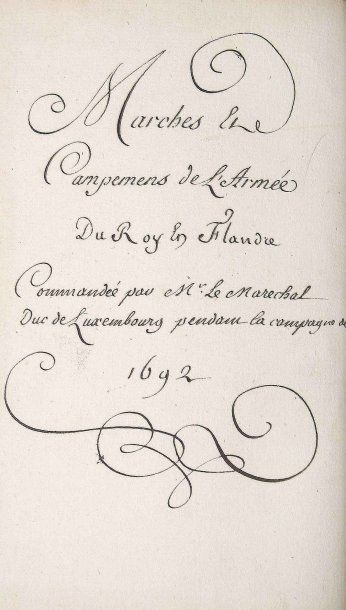 Marches Et
Campemens de L'Armée
Du Roy En Flandre
Commandée par Mr. Le Marechal
Duc de Luxembourg pendant la campagne de
1692